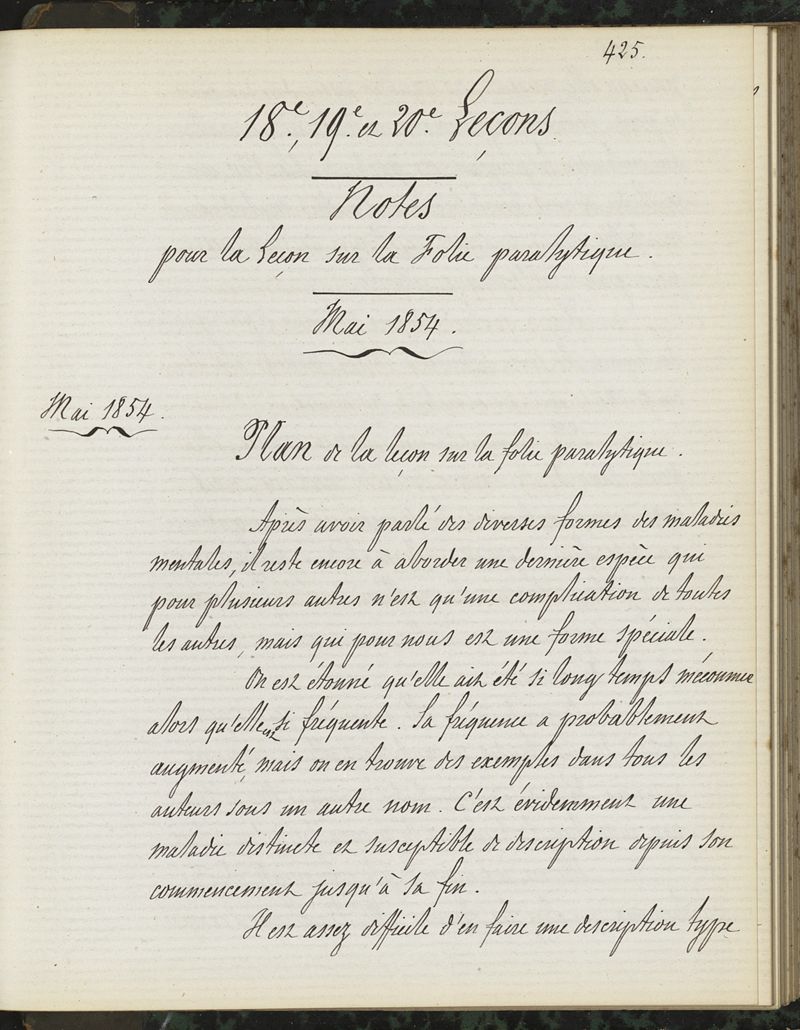 425.
18e, 19e et 20e Leçons
Notes
pour la Leçon sur la Folie paralytique.
Mai 1854.
Mai 1854.
Plan de la leçon sur la folie paralytique.
Après avoir parlé des diverses formes des maladies
mentales, il reste encore à aborder une dernière espèce qui
pour plusieurs autres n'est qu'une complication de toutes
les autres, mais qui pour nous est une forme spéciale.
On est étonné qu'elle ait été si long temps méconnue
alors qu'elle est si fréquente. Sa fréquence a probablement
augmenté, mais on en trouve des exemples dans tous les
auteurs sous un autre nom. C'est évidemment une
maladie distincte et susceptible de description depuis son
commencement jusqu'à sa fin.
Il est assez difficile d'en faire une description type